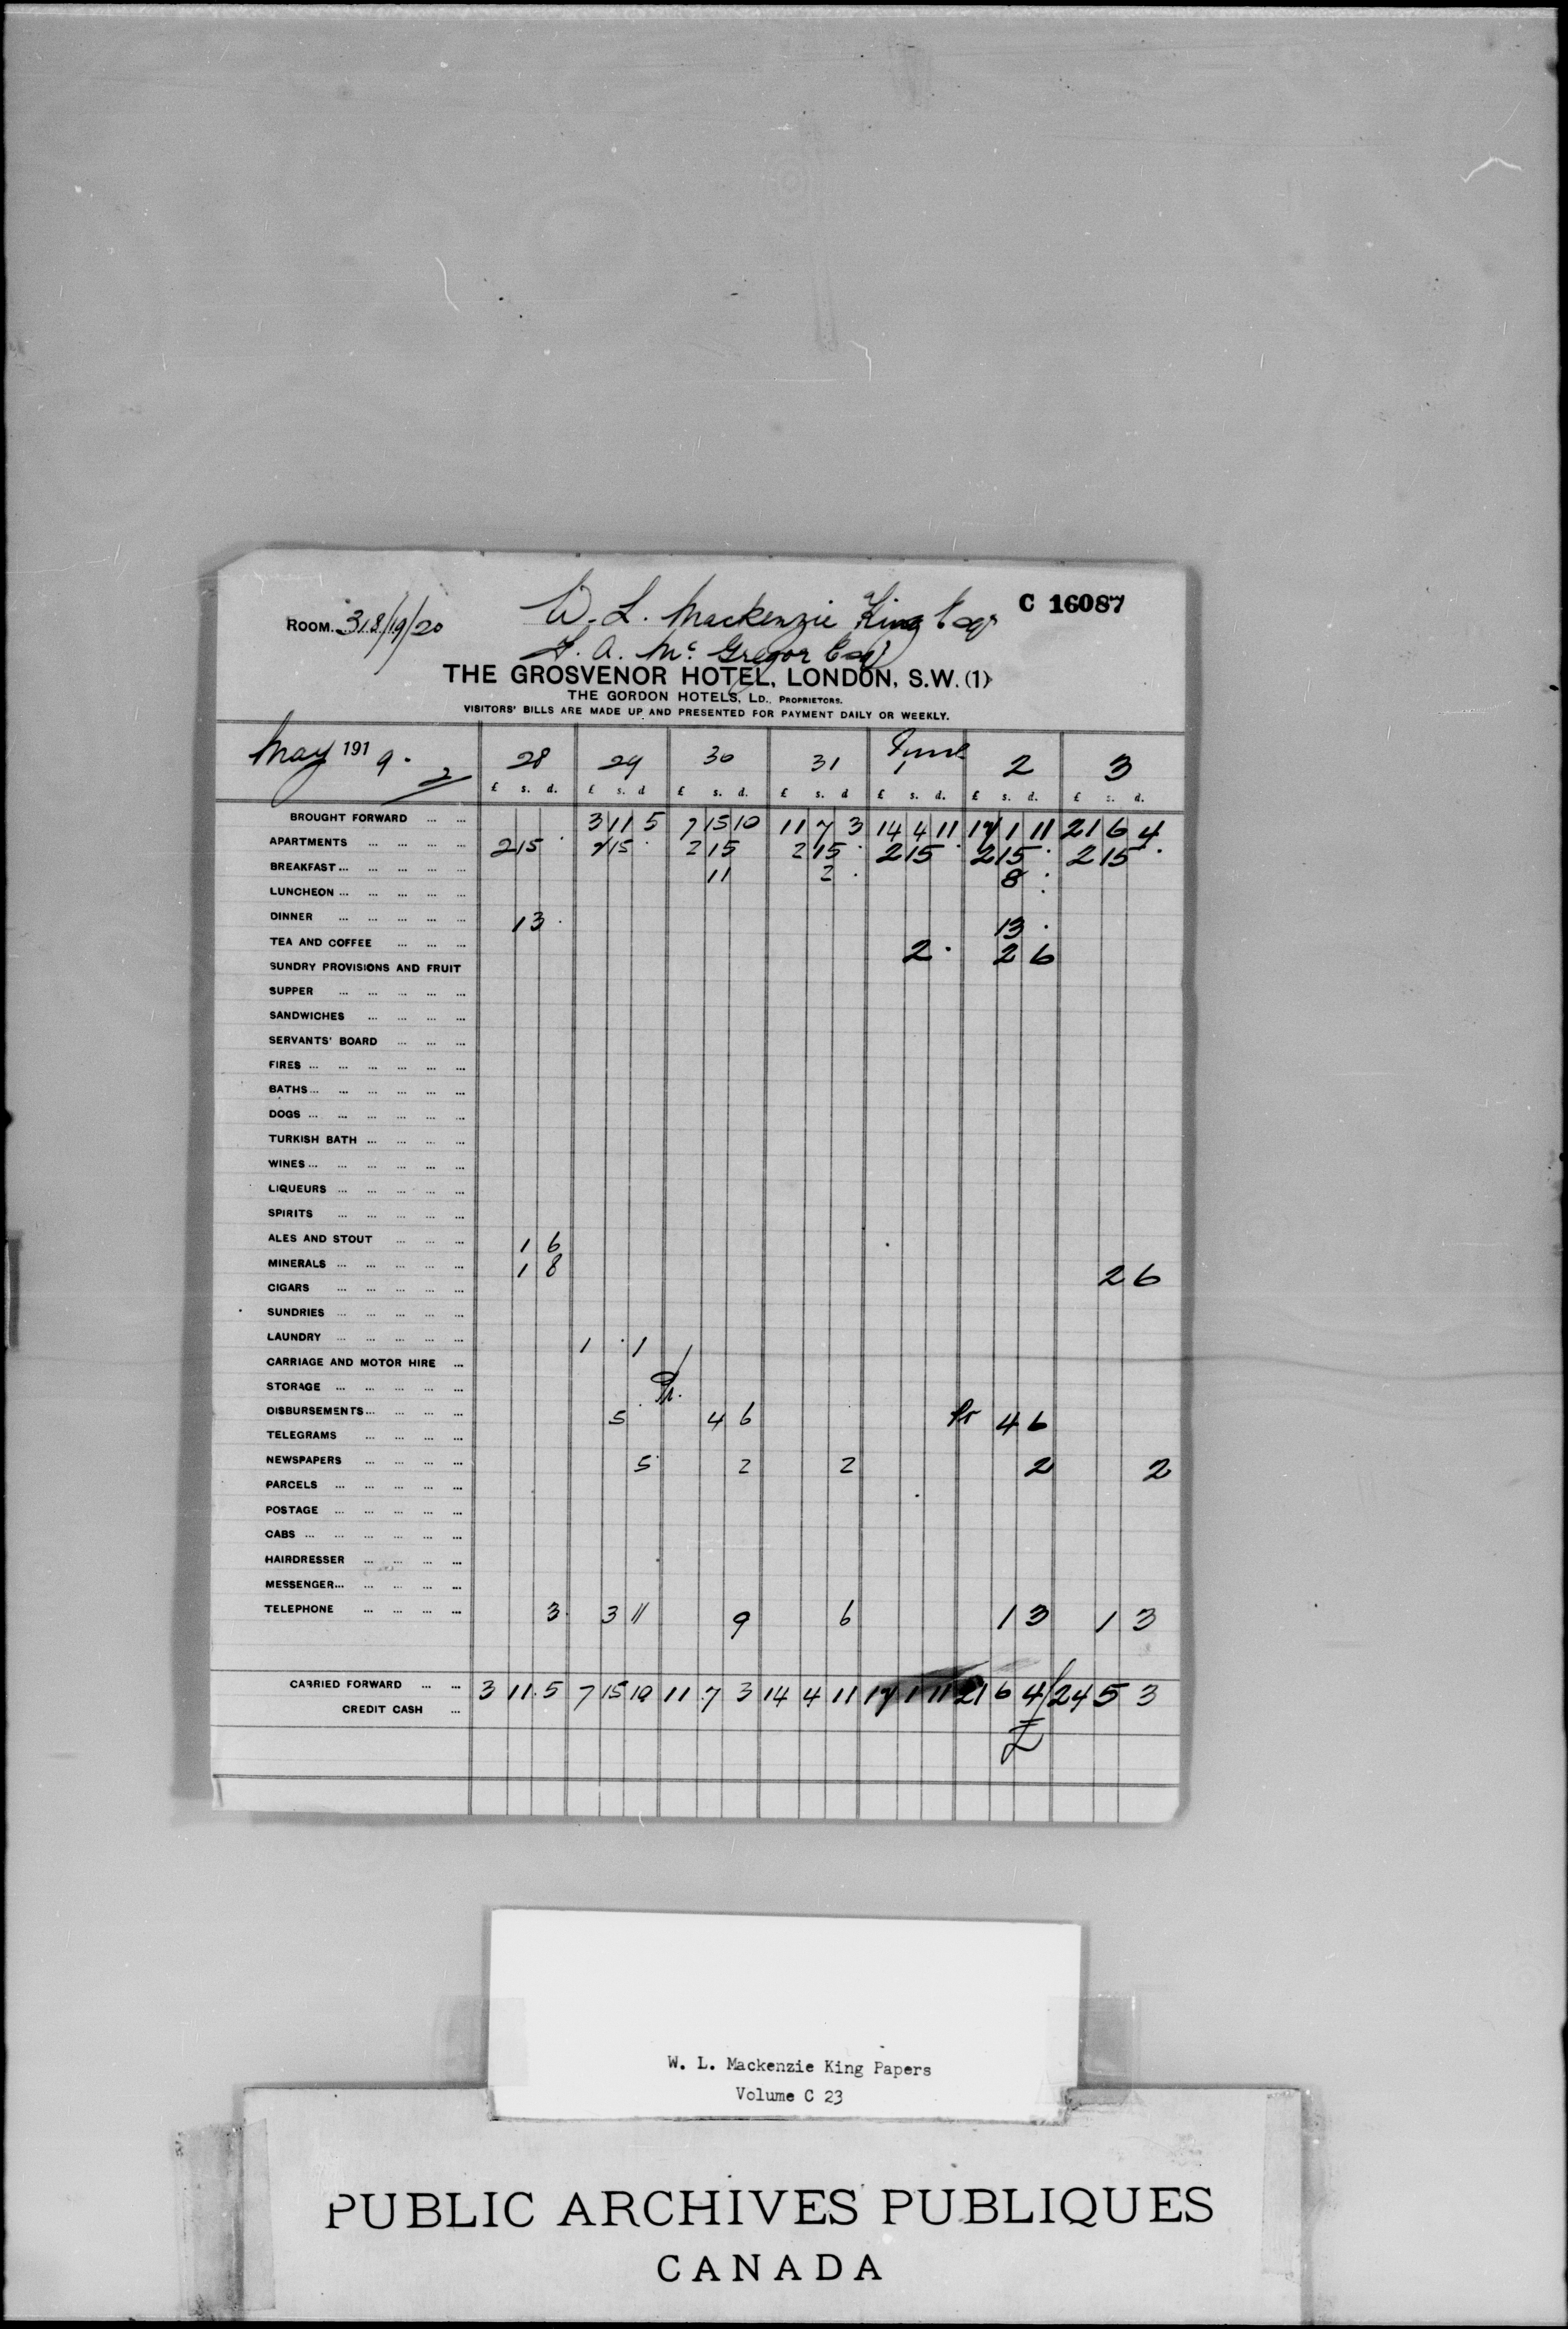 C 16087
ROOM. 318/19/20 W. L. Mackenzie King Esqr
F. A. Mc Gregor Esqr
THE GROSVENOR HOTEL, LONDON, S.W. (1)
THE GORDON HOTELS, LD., PROPRIETORS.
VISITORS' BILLS ARE MADE UP AND PRESENTED FOR PAYMENT DAILY OR WEEKLY.
May 1919. 28 29 30 31 June 1 2 3
£ s. d. £ s. d £ s. d. £ s. d £ s. d. £ s. d. £ s. d.
BROUGHT FORWARD ... ... 3 11 5 7 15 10 11 7 3 14 4 11 17 1 11 21 6 4
APARTMENTS ... ... ... ... 2 15 . 2 15 . 2 15 2 15 . 2 15 . 2 15 . 2 15 .
BREAKFAST ... ... ... ... ... 11 2 . 8 .
LUNCHEON ... ... ... ... ...
DINNER ... ... ... ... ... 13 . 13 .
TEA AND COFFEE ... ... ... 2 . 2 6
SUNDRY PROVISIONS AND FRUIT
SUPPER ... ... ... ... ...
SANDWICHES ... ... ... ...
SERVANTS' BOARD ... ... ...
FIRES ... ... ... ... ... ...
BATHS ... ... ... ... ... ...
DOGS ... ... ... ... ... ...
TURKISH BATH ... ... ... ...
WINES ... ... ... ... ... ...
LIQUEURS ... ... ... ... ...
SPIRITS ... ... ... ... ...
ALES AND STOUT ... ... ... 1 6
MINERALS ... ... ... ... ... 1 8 2 6
CIGARS ... ... ... ... ...
SUNDRIES ... ... ... ... ...
LAUNDRY ... ... ... ... ... 1 . 1
CARRIAGE AND MOTOR HIRE ...
STORAGE ... ... ... ... ...
DISBURSEMENTS ... ... ... ... 5 4 6 Pr 4 6
TELEGRAMS ... ... ... ...
NEWSPAPERS ... ... ... ... 5 2 2 2 2
PARCELS ... ... ... ... ...
POSTAGE ... ... ... ... ...
CABS ... ... ... ... ... ...
HAIRDRESSER ... ... ... ...
MESSENGER ... ... ... ... ...
TELEPHONE ... ... ... ... 3 3 11 9 6 1 3 1 3
CARRIED FORWARD ... ... 3 11 5 7 15 10 11 7 3 14 4 11 17 1 11 21 6 4 24 5 3
CREDIT CASH ...
W. L. Mackenzie King Papers
Volume C 23
PUBLIC ARCHIVES PUBLIQUES
CANADA